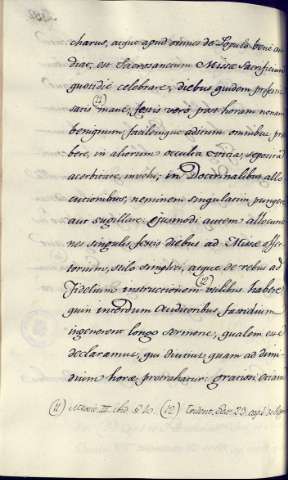 charus, atque apud omnes de Populo bene au-
diat, est Sacrosanctum Missæ Sacrificium
quotidie celebrare, diebus quidem profestis
satis (11) mane, festis vero post horam nonam
benignum, facilemque aditum omnibus præ-
bere, in aliorum occulta vitia, seposita
acerbitate, invehi; in Doctrinalibus allo-
cutionibus, neminem singulatim pungere,
aut sugillare. Ejusmodi autem allocutio-
nes singulis festis diebus ad Missæ offer-
torium, stilo simplici, atque de rebus ad
Fidelium instructionem (12) utilibus habere,
quin interdum Auditoribus fastidium
ingenerent longo sermone, qualem esse
declaramus, qui diutius quam ad dimi-
dium horæ protrahatur: gratiori etiam
(11) (12) Trident. Sess. 23. cap.